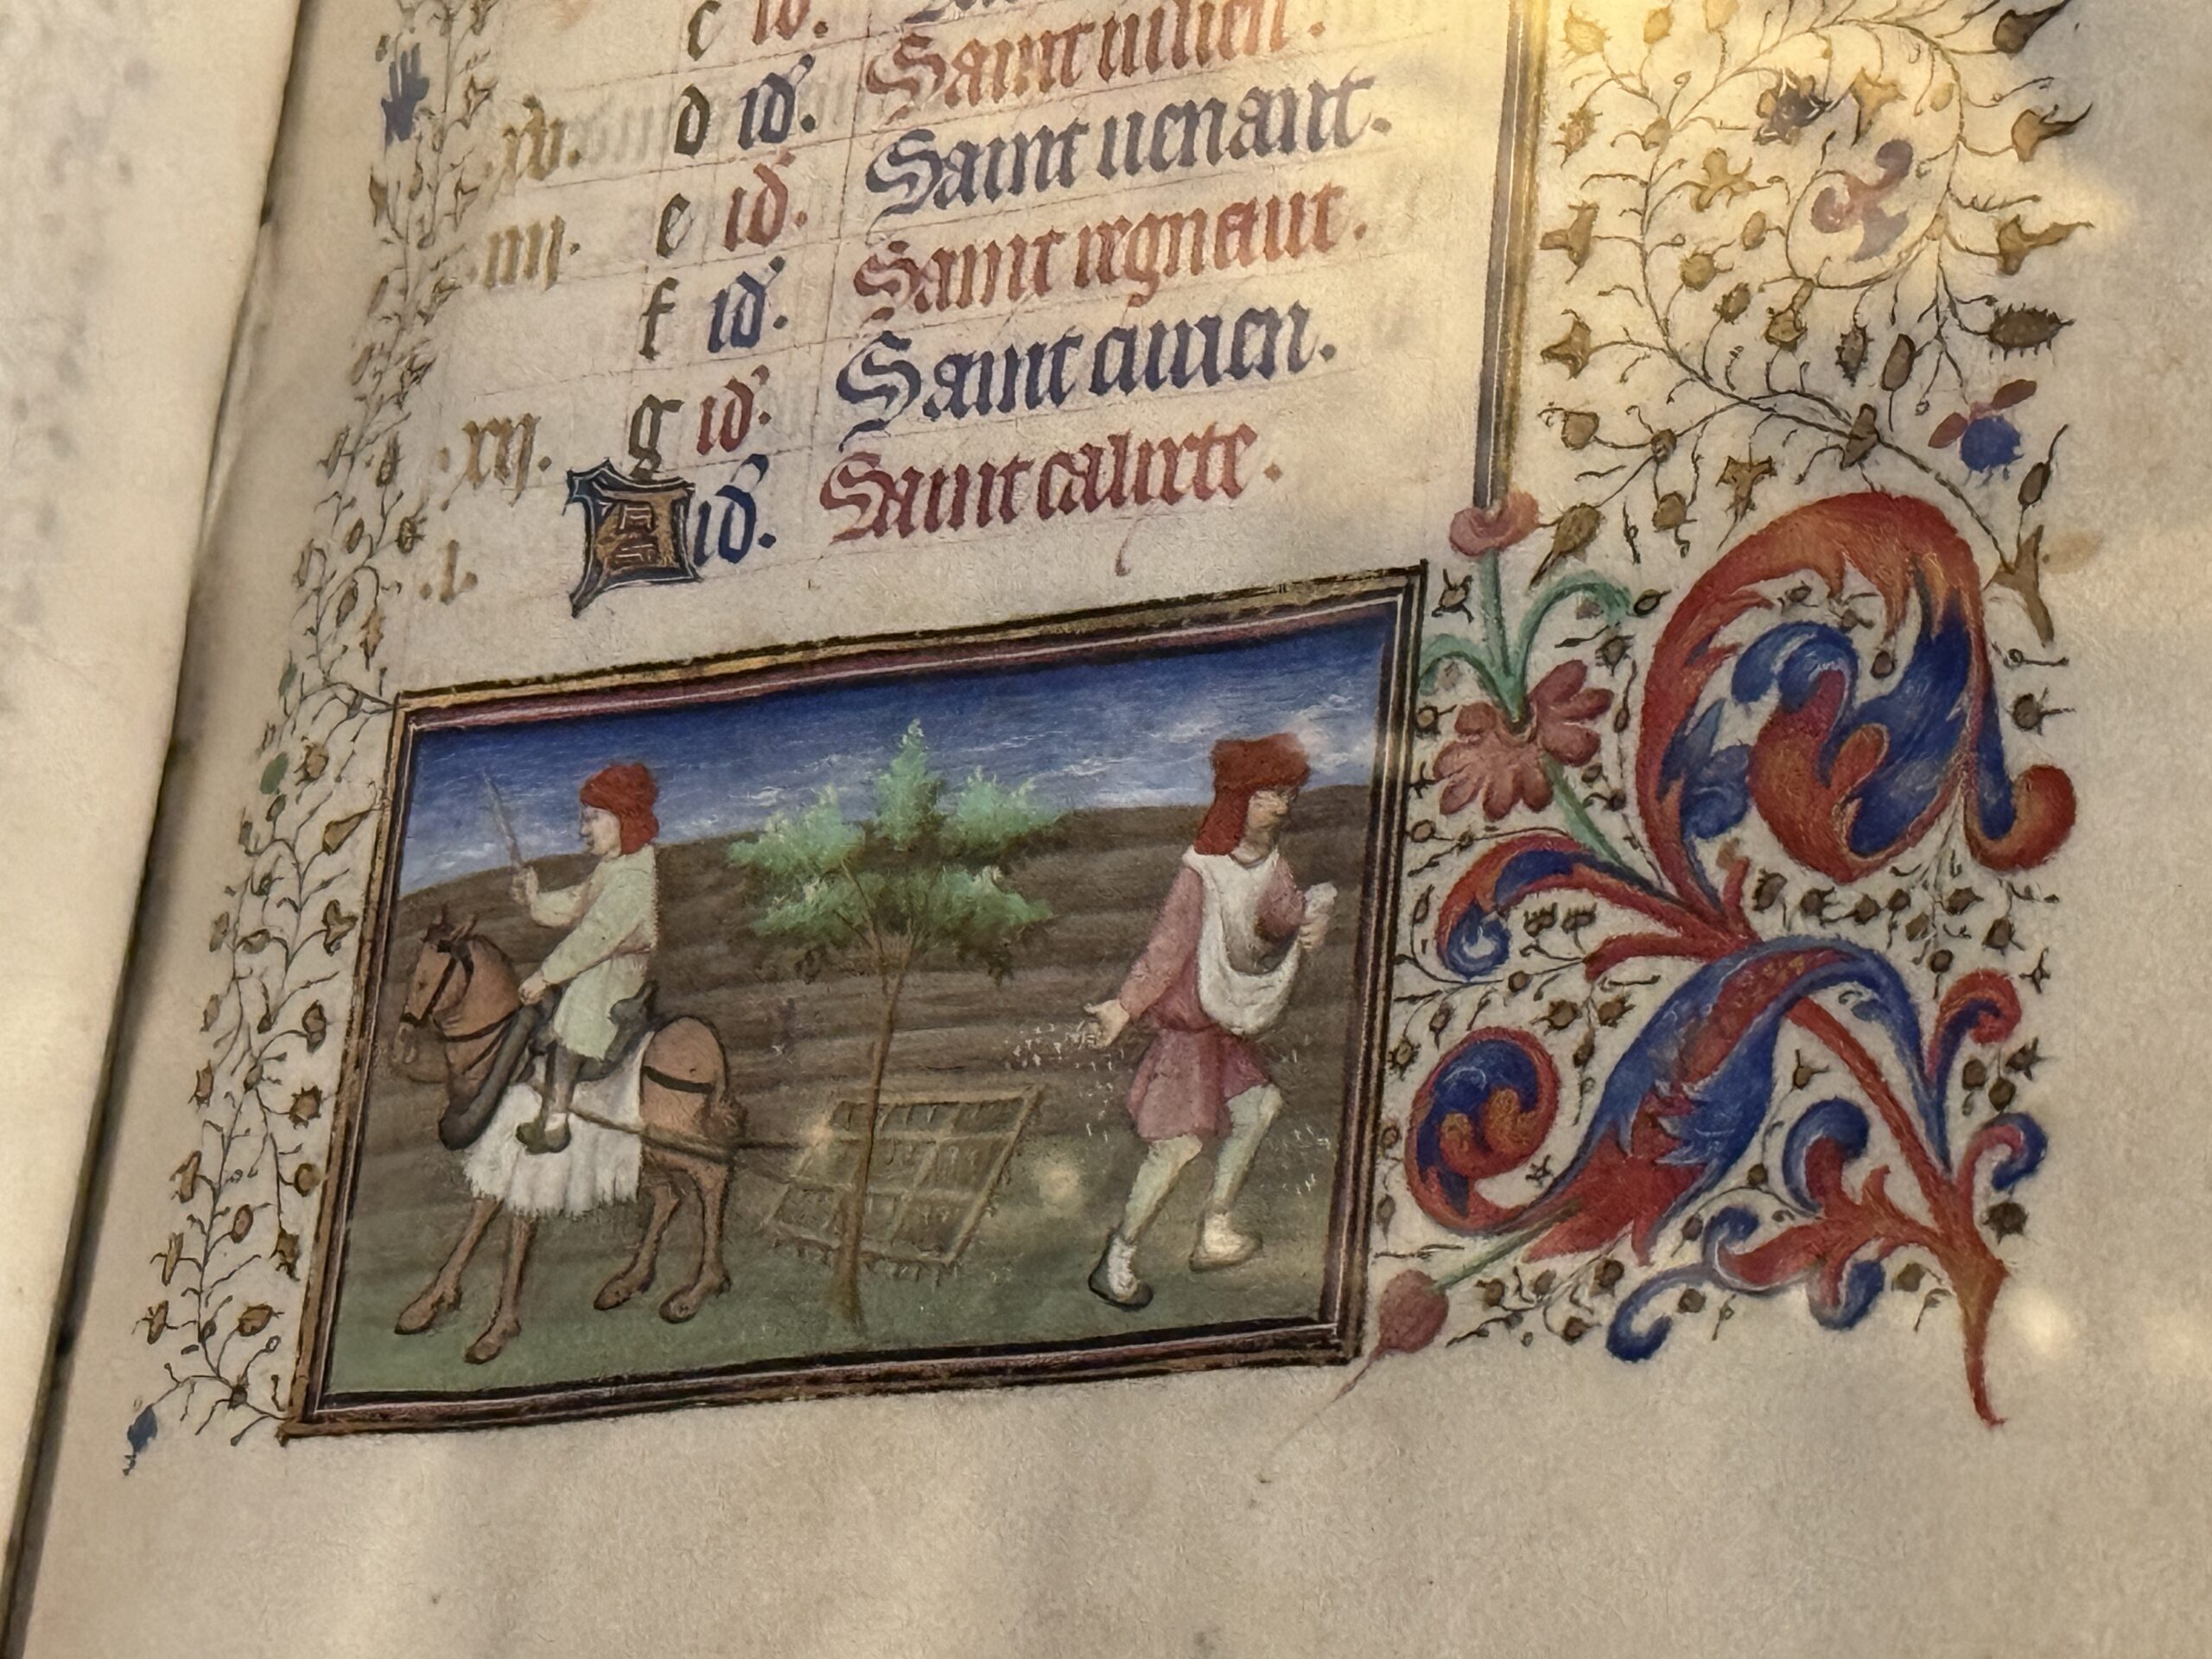 c id.
.xv. d id. Saint iulien.
.iiii. e id. Saint uenant.
f id. Saint regnaut.
.xii. g id. Saint
.i. A id. Saint calixte.